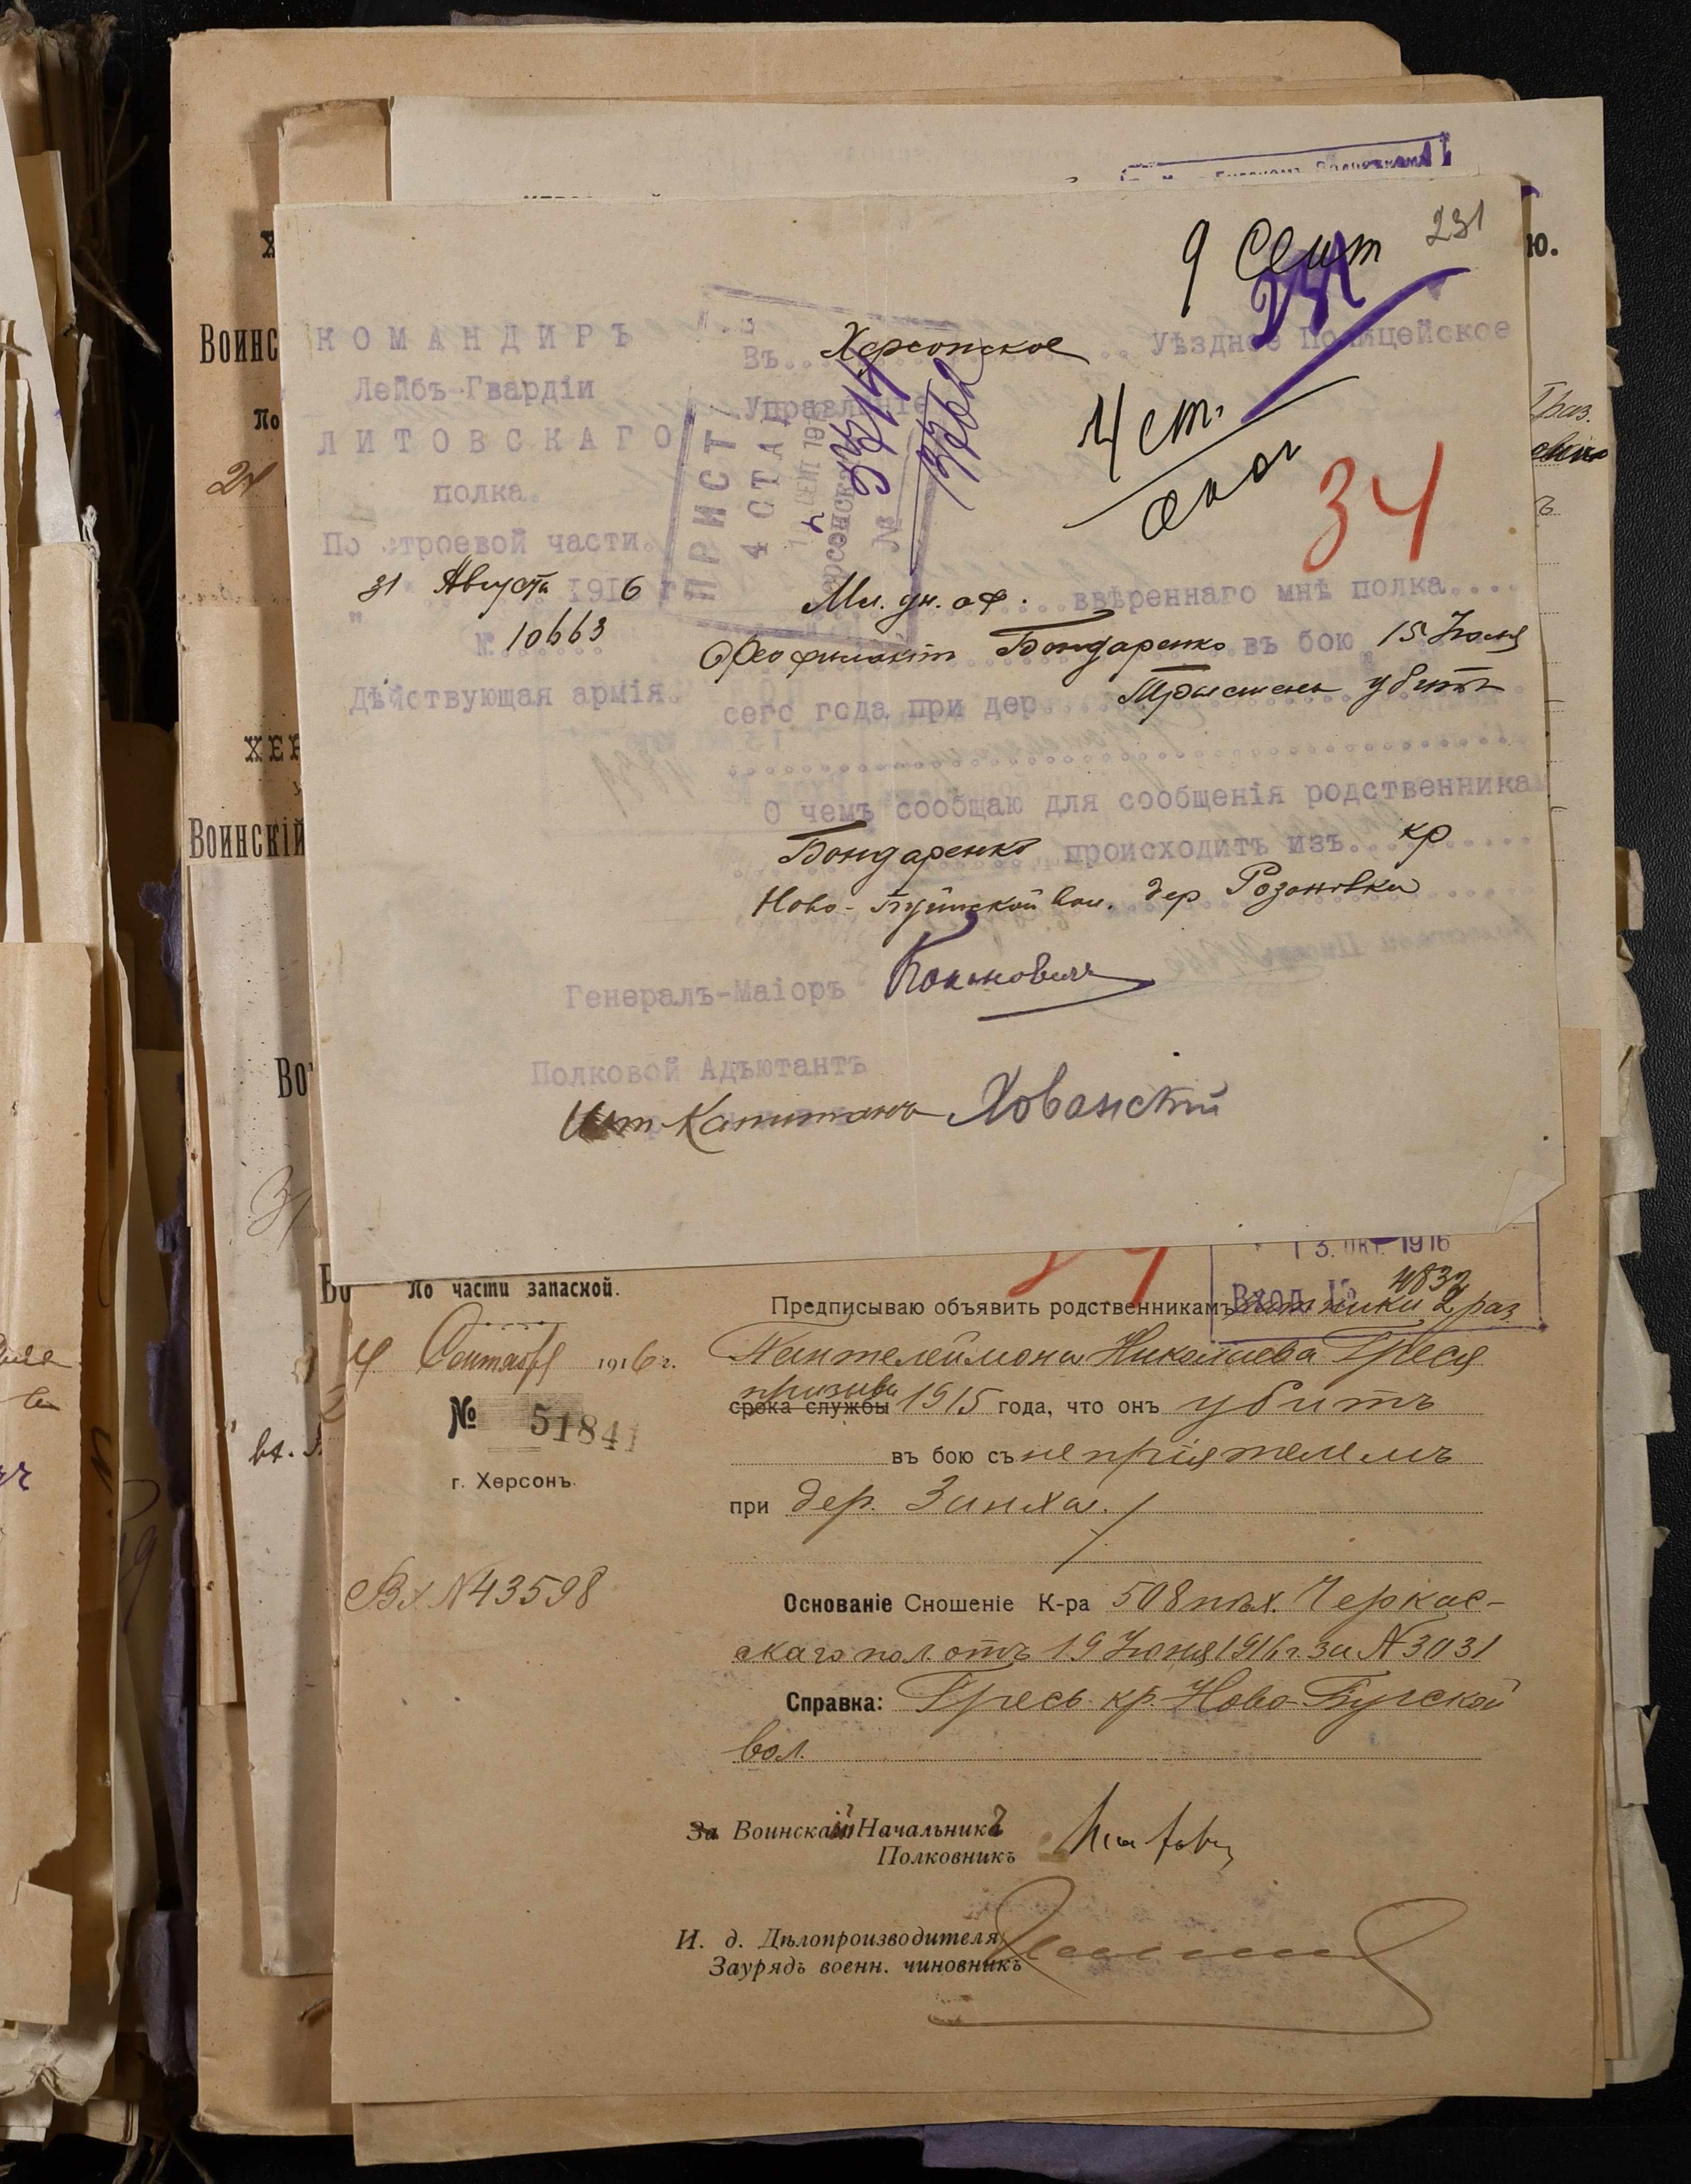 231
9 Сент
КОМАНДИРЪ
Лейбъ-Гвардіи
ЛИТОВСКАГО
полка.
По строевой части.
31 Августа 1916 г.
№ 10663
Дѣйствующая армія.
Въ Херсонское Уѣздное Полицейское
Управленіе
ПРИСТ
4 СТАН
СЕНТ 191
№
4 ст.
34
Мл. ун. оф. ввѣреннаго мнѣ полка
Феофилактъ Бондаренко въ бою 15 Іюля
сего года при дер. Трыстень убитъ
О чемъ сообщаю для сообщенія родственника
Бондаренко происходитъ изъ кр
Ново-Бугской вол. дер Розановки
Генералъ-Маіоръ
Полковой Адъютантъ
Шт-Капитанъ Хованскій
13. ОКТ. 1916
Вход. № 4832
По части запасной.
4 Сентября 1916 г.
№ 51841
г. Херсонъ.
Вх N 43598
Предписываю объявить родственникамъ ратника 2 раз
Пантелеймона Николаева Греся
призыва
срока службы 1915 года, что онъ убитъ
въ бою съ непріятелемъ
при дер. Зинха.
Основаніе Сношеніе К-ра 508 пѣх. Черкас-
скаго пол. отъ 19 Іюня 1916 г. за N 3031
Справка: Гресь кр. Ново-Бугской
вол.
За Воинскій Начальникъ
Полковникъ
И. д. Дѣлопроизводителя
Заурядъ военн. чиновникъ
Воинс
По
24
ХЕР
Воинскій
Во
ю.